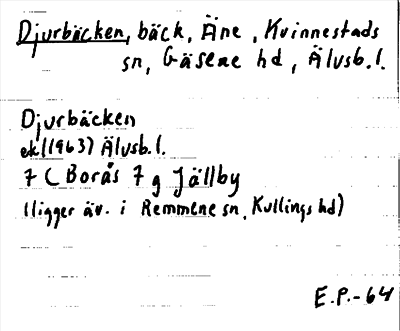 Djurbäcken, bäck, Äne, Kvinnestads
sn, Gäsene hd, Älvsb. l.
Djurbäcken
ek (1963) Älvsb. l.
7 C Borås 7 g Jällby
(ligger äv. i Remmene sn, Kullings hd)
E.P.-64